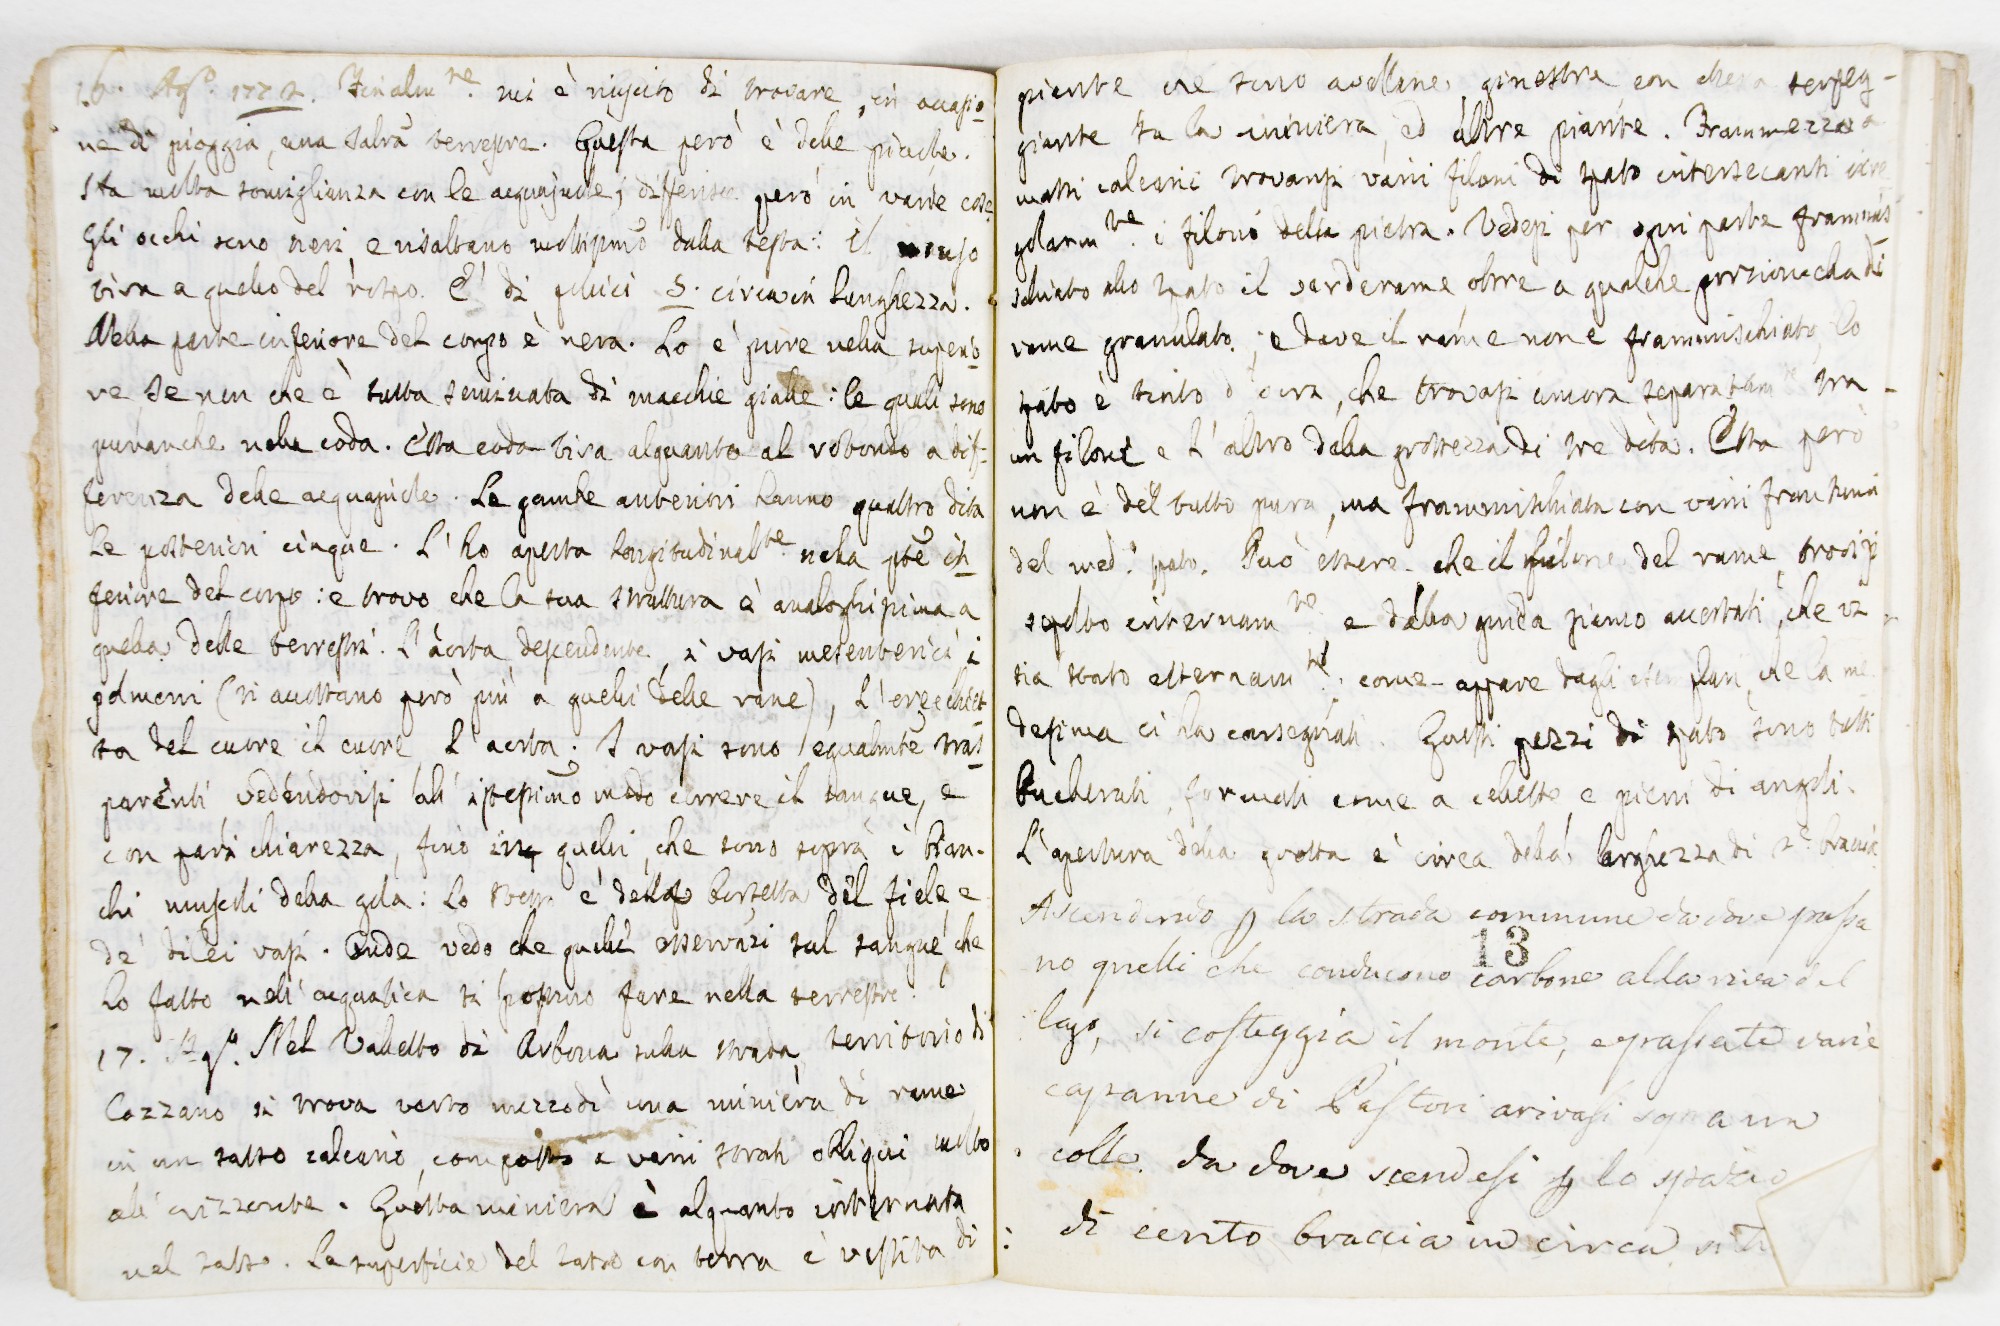 16. Ag.º 1772. Finalm.te mi è riuscito di trovare, in occasio-
ne di pioggia, una Salam.ª terrestre. Questa però è delle piccole.
Ha molta somiglianza con le acquajuole; differisce però in varie cose
Gli occhi sono neri e risaltano moltissimo dalla testa: il muso
tira a quello del rospo. È di pollici 5. circa in lunghezza.
Nella parte inferiore del corpo è nera. Lo è pure nella superio-
re se non che è tutta seminata di macchie gialle: le quali sono
puranche nella coda. Essa coda tira alquanto al rotondo a dif-
ferenza delle acquajuole. Le gambe anteriori hanno quattro dita
Le posteriori cinque. L'ho aperta longitudinal.te nella pte in-
feriore del corpo: e trovo che la sua struttura è analoghissima a
quella delle terrestri. L'aorta descendente, i vasi mesenterici i
polmoni (si accostano però più a quelli delle rane), l'orecchiet-
ta del cuore il cuore l'aorta. I vasi sono egualmte tras-
parenti vedendovisi all'istessimo modo correre il sangue, e
con pari chiarezza, fino in quelli, che sono sopra i bian-
chi muscoli della gola: Lo è della borsetta del fiele e
de' di lei vasi. Onde vedo che quelle osservazi sul sangue che
ho fatto nell'acquatica si possono fare nella terrestre.
17. Ag.º Nel Valletto di Arbona sulla strada, territorio di
Cazzano si trova verso mezzodì una miniera di rame
in un sasso calcario, composto a varii strati obliqui molto
all'orizzonte. Questa miniera è alquanto internata
nel sasso. La superficie del sasso con terra è vestita di
piante che sono avellane, ginestra con serpeg-
giante su la miniera, ed altre piante. Frammezzo a
massi calcarii trovansi varii filoni di spato intersecanti irre-
golarm.te i filoni della pietra. Vedesi per ogni parte frammis-
schiato allo spato il verderame oltre a qualche porzioncella di
rame granulato; e dove il rame non è frammischiato, lo
spato è tinto d'ocra, che trovasi ancora separatam.te tra
un filone e l'altro della grossezza di tre dita. Essa però
non è del tutto pura, ma frammischiata con varii frantumi
del med.º spato. Può essere che il filone del rame, trovisi
sepolto internam.te e dalla guida siamo accertati, che vi
sia stato esternam.te come appare dagli esemplari che la me-
desima ci ha consegnati. Questi pezzi di spato sono tutti
bucherati, formati come a cellette, e pieni di angoli.
L'apertura della grotta è circa della larghezza di 2. braccia.
Ascendendo p la strada commune da dove passa
no quelli che conducono carbone alla riva del
13
lago, si costeggia il monte, e passate varie
capanne di Pastori arivasi sopra un
colle. da dove scendesi p lo spazio
di cento braccia in circa,